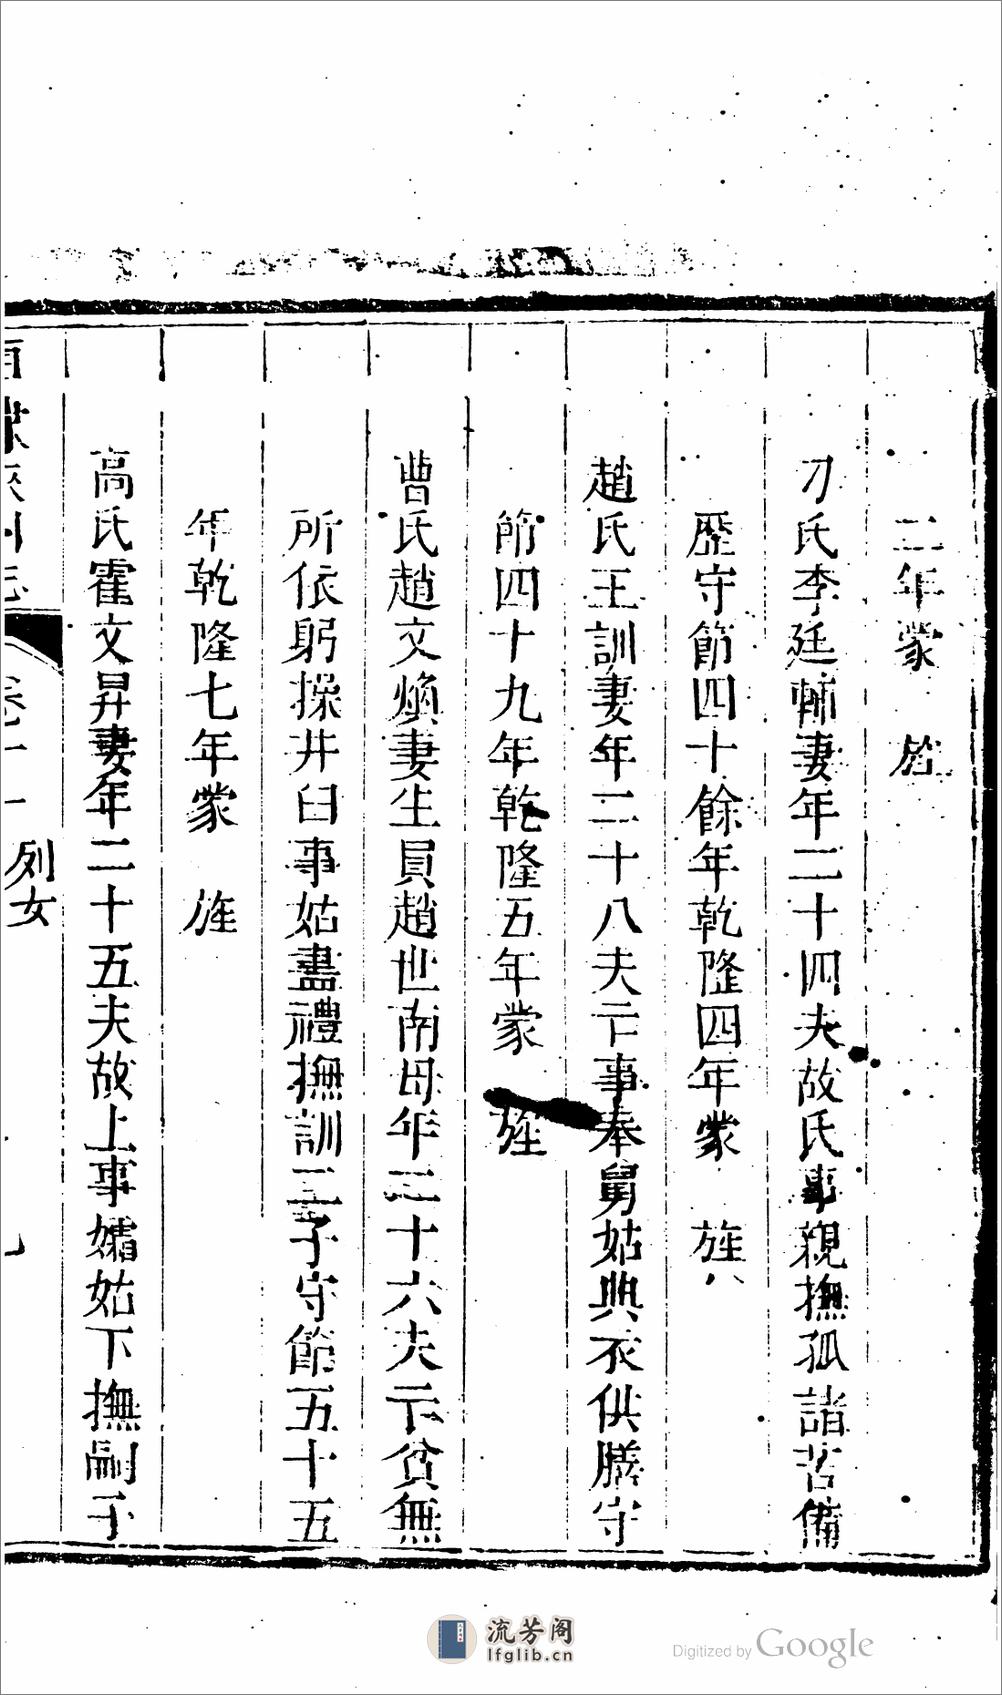 二年蒙　旌
刁氏李廷輔妻年二十四夫故氏事親撫孤諸苦備
歷守節四十餘年乾隆四年蒙　旌
趙氏王訓妻年二十八夫亡事奉舅姑典衣供膳守
節四十九年乾隆五年蒙　旌
曹氏趙文煥妻生員趙世南母年二十六夫亡貧無
所依躬操井臼事姑盡禮撫訓二子守節五十五
年乾隆七年蒙　旌
高氏霍文昇妻年二十五夫故上事孀姑下撫嗣子
列女
流芳阁
lfglib.cn
Digitized by Google